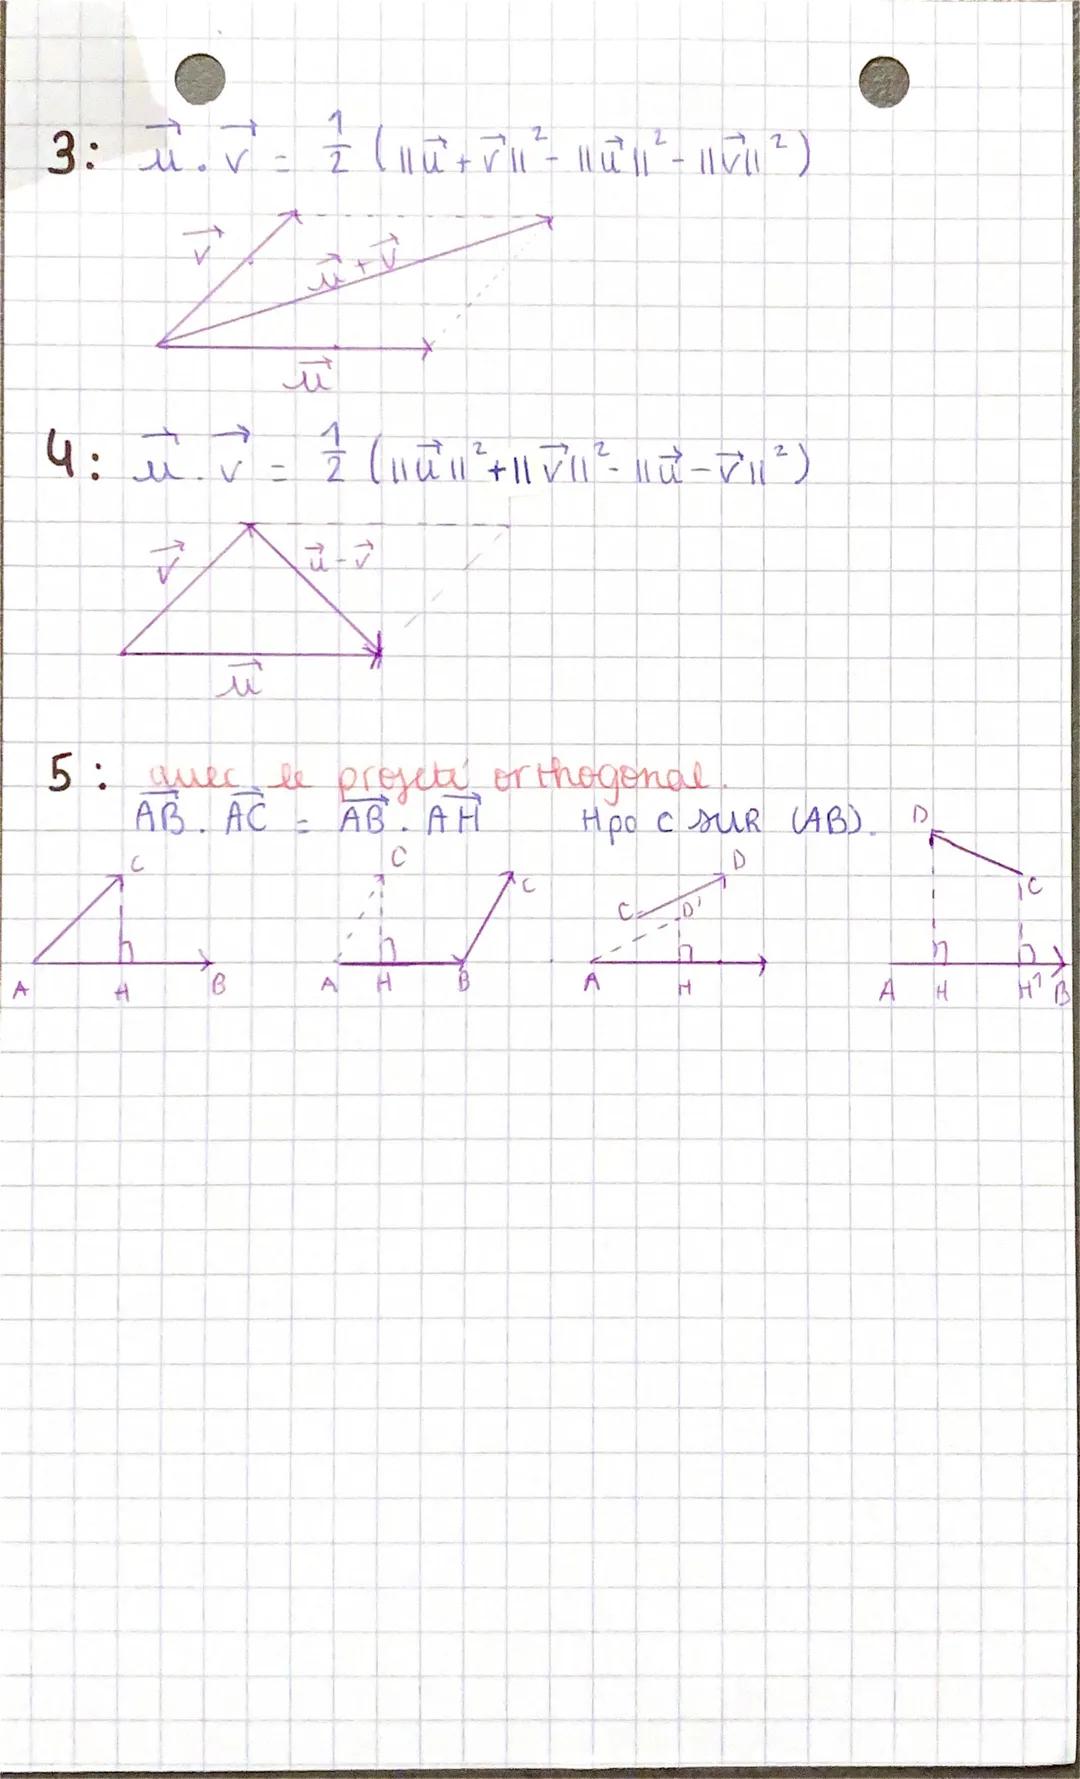 3: u⃗ . v⃗ = 1/2 (||u⃗ + v⃗||² - ||u⃗||² - ||v⃗||²)
v⃗
u⃗ + v⃗
u⃗
4: u⃗ . v⃗ = 1/2 (||u⃗||² + ||v⃗||² - ||u⃗ - v⃗||²)
v⃗ u⃗ - v⃗
u⃗
5 : avec le projeté orthogonal.
AB⃗ . AC⃗ = AB⃗ . AH⃗ H po C SUR (AB).
C
A H B
C C
A H B
D
C D'
A H
D
C
A H H' B